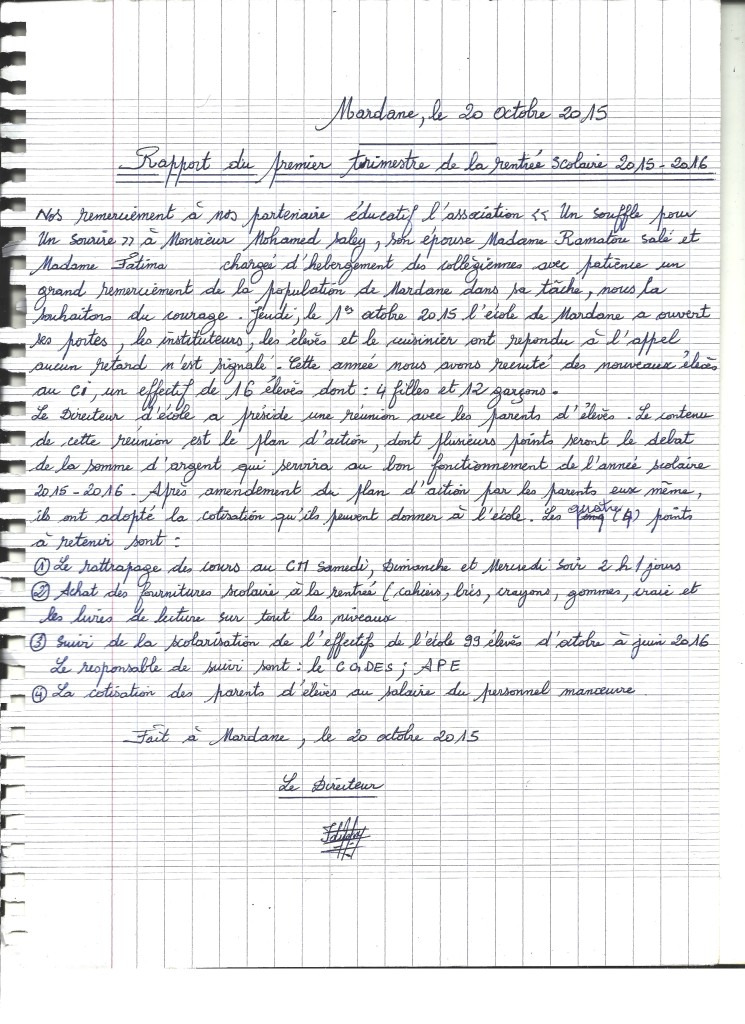 Mardane, le 20 octobre 2015
Rapport du premier trimestre de la rentrée scolaire 2015-2016
Nos remerciement à nos partenaire éducatif l'association << Un souffle pour
Un sourire >> à Monsieur Mohamed saley, son épouse Madame Ramatou salé et
Madame Fatima chargeé d'hebergement des collègiennes avec patience un
grand remerciement de la population de Mardane dans sa tâche, nous la
souhaitons du courage. Jeudi, le 1er octobre 2015 l'école de Mardane a ouvert
ses portes, les instituteurs, les élevès et le cuisinier ont repondu à l'appel
aucun retard n'est signalé. Cette année nous avons recruté des nouveaux élevès
au CI, un effectif de 16 élevès dont : 4 filles et 12 garçons.
Le Directeur d'école a préside une réunion avec les parents d'élevès. Le contenu
de cette réunion est le plan d'action, dont plusieurs points seront le debat
de la somme d'argent qui servira au bon fonctionnement de l'année scolaire
2015-2016. Après amendement du plan d'action par les parents eux même,
ils ont adopté la cotisation qu'ils peuvent donner à l'école. Les quatre (4) points
à retenir sont :
① Le rattrapage des cours au CM Samedi, Dimanche et Mercredi soir 2 h/jours
② Achat des fournitures scolaire à la rentrée (cahiers, bics, crayons, gommes, craie et
les livres de lecture sur tout les niveaux
③ Suivi de la scolarisation de l'effectifs de l'école 99 élevès d'octobre à juin 2016
Le responsable de suivi sont : le COGDES ; APE
④ La cotisation des parents d'élevès au salaire du personnel manœuvre
Fait à Mardane, le 20 octobre 2015
Le Directeur